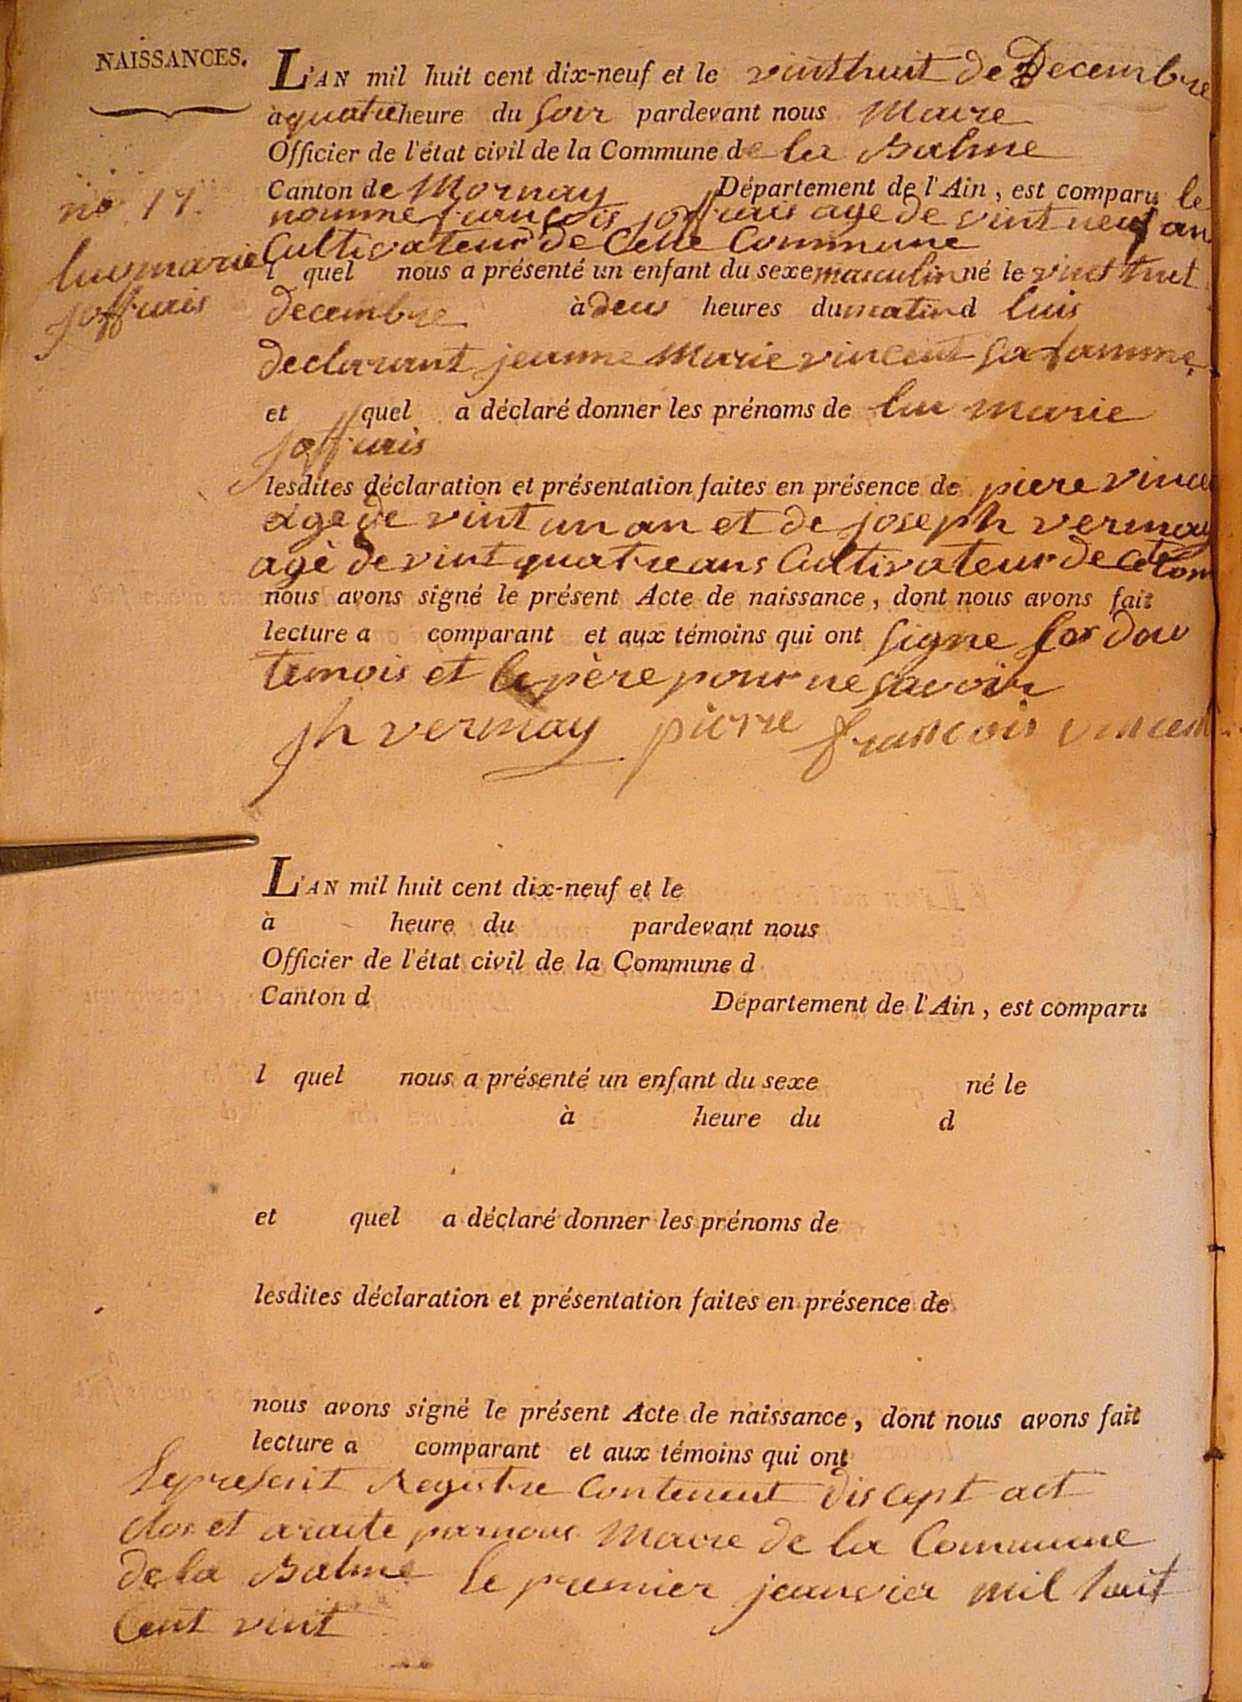 NAISSANCES.
L'AN mil huit cent dix-neuf et le vinthuit de Decembre
à quatre heure du soir pardevant nous Maire
Officier de l'état civil de la Commune de la Balme
Canton de Mornay Département de l'Ain, est comparu le
nommé françois joffrais age de vint neuf an
Cultivateur de Cette Commune
l quel nous a présenté un enfant du sexe masculin né le vint huit
decembre à deus heures du matin d luis
declarant jeanne Marie vincent sa famme
et quel a déclaré donner les prénoms de luc marie
joffrais
no 17.
luc marie
joffrais
lesdites déclaration et présentation faites en présence de piere vince
age de vint un an et de joseph vermay
agè de vint quatre ans Cultivateur de
nous avons signé le présent Acte de naissance, dont nous avons fait
lecture a comparant et aux témoins qui ont signe
temois et le père pour ne savoir
jh vermay pierre francois vincent
L'AN mil huit cent dix-neuf et le
à heure du pardevant nous
Officier de l'état civil de la Commune d
Canton d Département de l'Ain, est comparu
l quel nous a présenté un enfant du sexe né le
à heure du d
et quel a déclaré donner les prénoms de
lesdites déclaration et présentation faites en présence de
nous avons signé le présent Acte de naissance, dont nous avons fait
lecture a comparant et aux témoins qui ont
Le present Registre Contenent dis cept act
clos et araite par nous Maire de la Commune
de la Balme le premier jeanvier mil huit
Cent vint